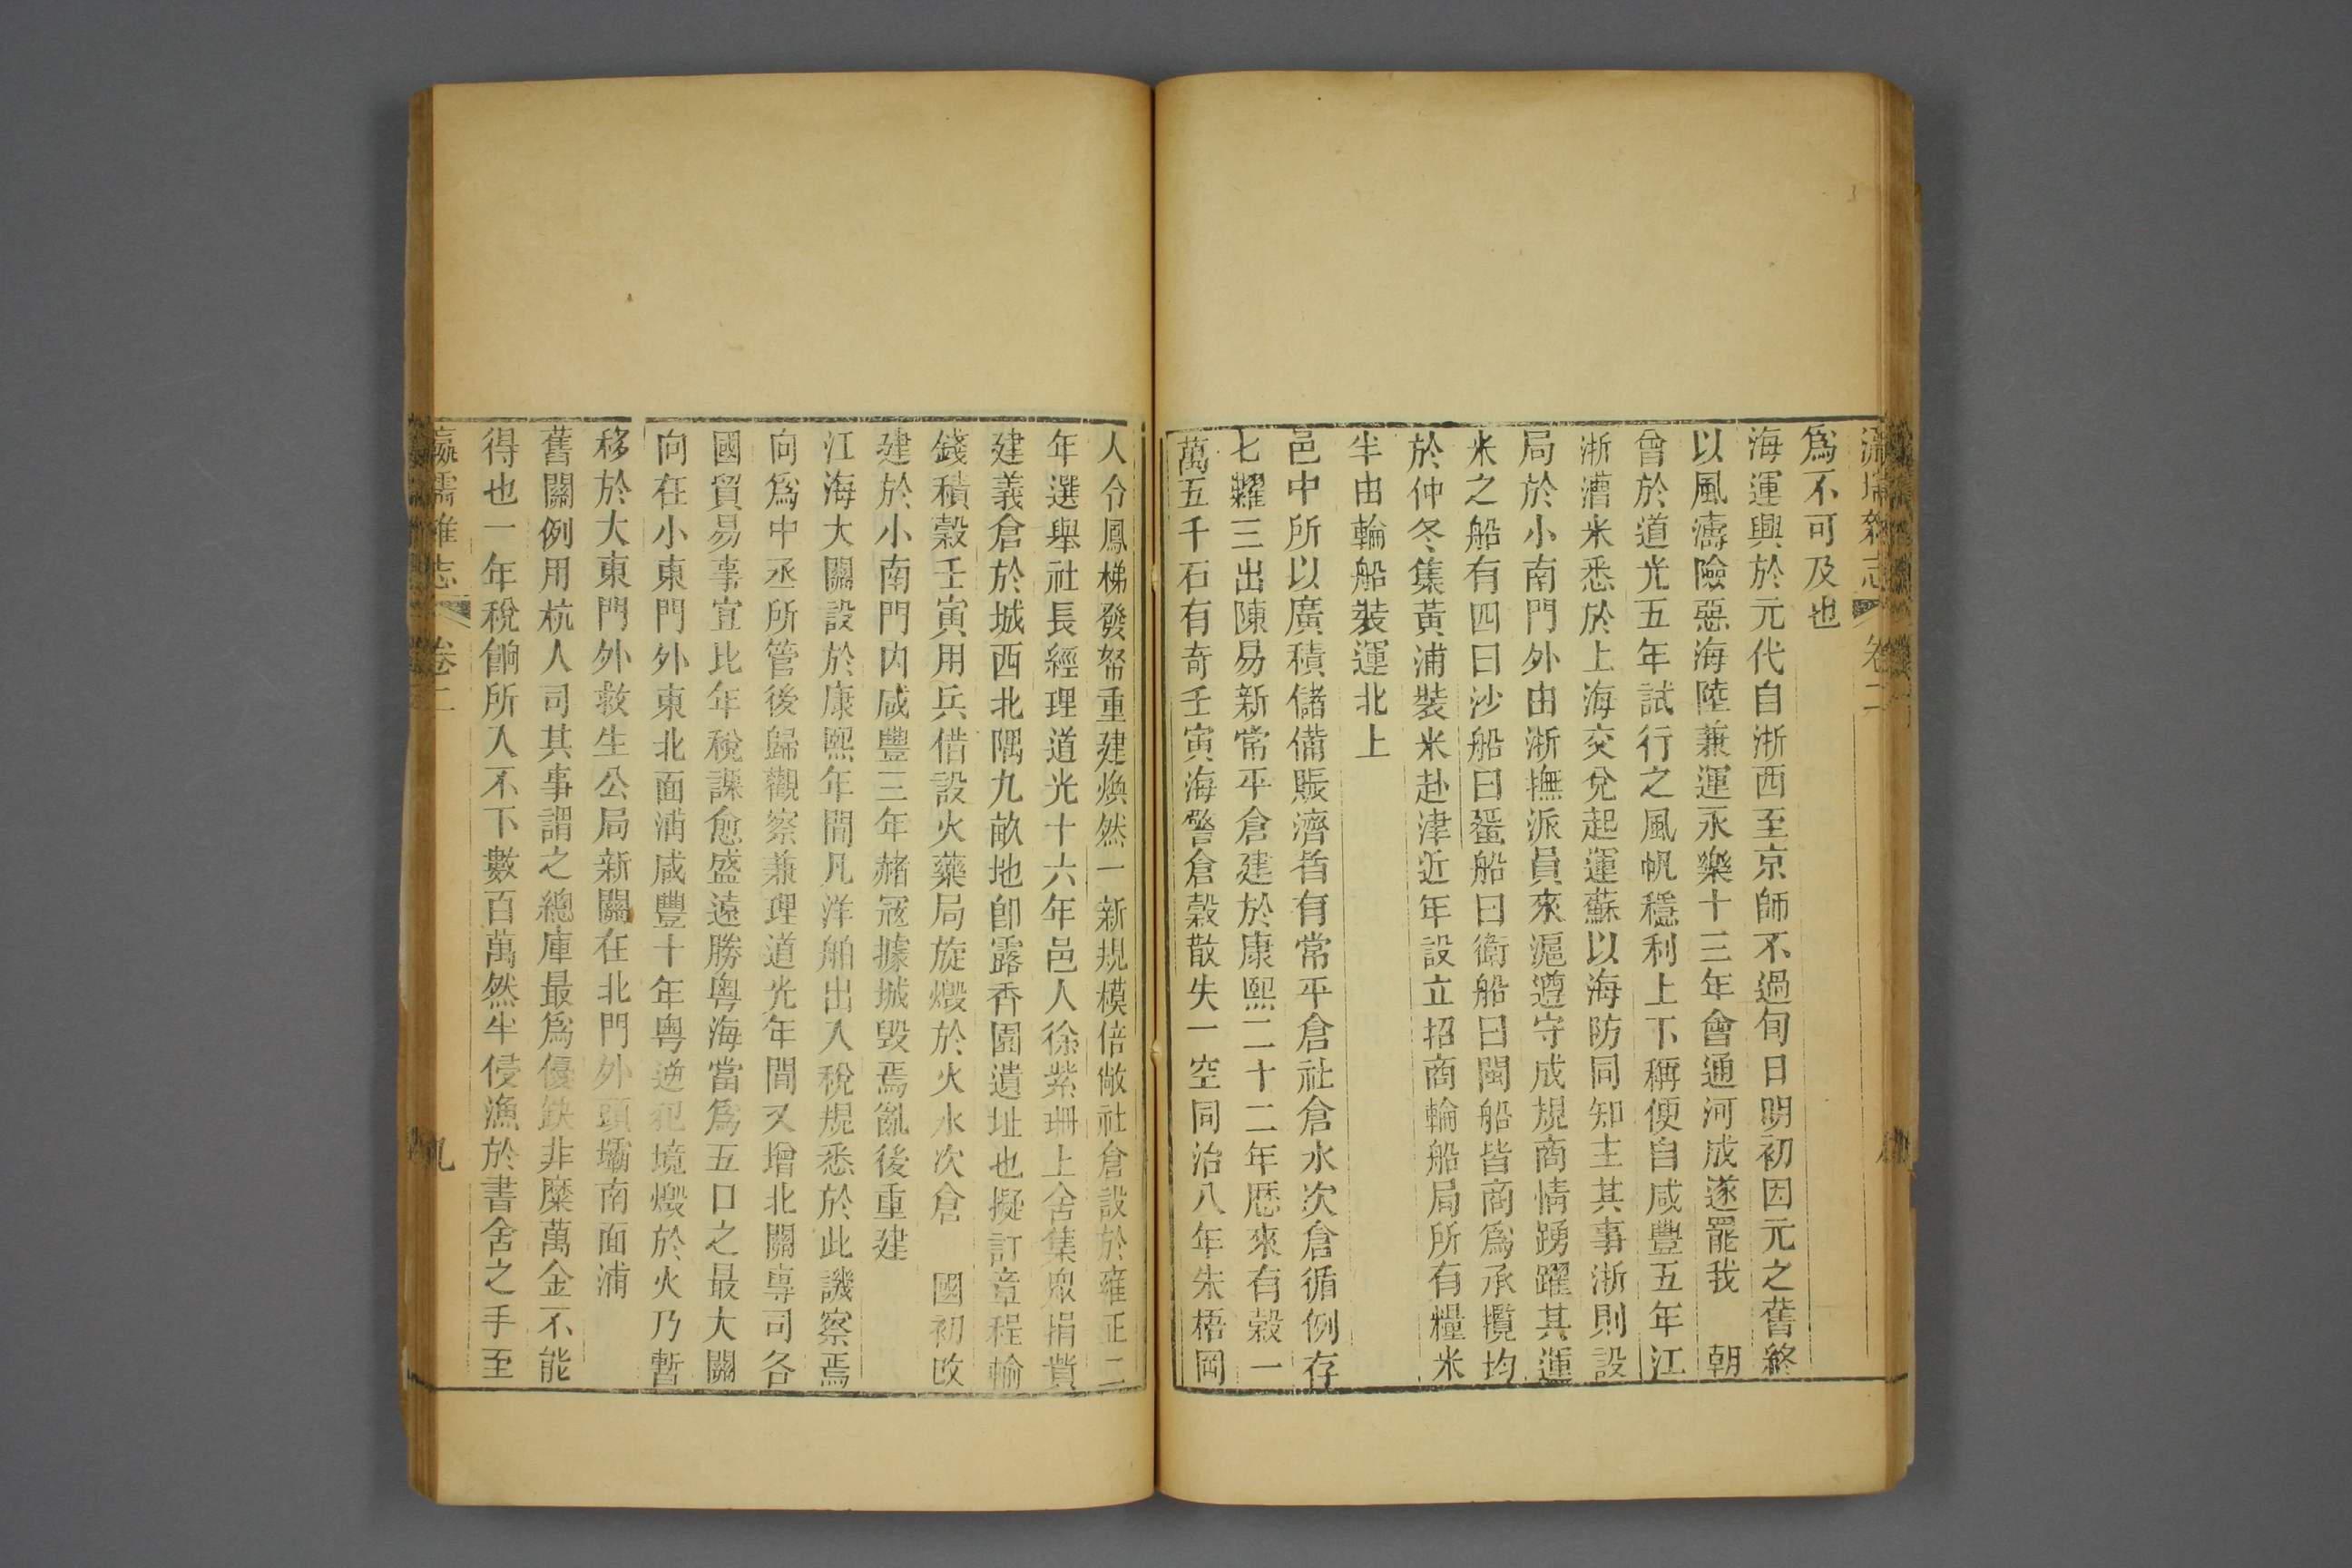 瀛壖雜志 卷二
爲不可及也
海運興於元代自浙西至京師不過旬日明初因元之舊終
以風濤險惡海陸兼運永樂十三年會通河成遂罷我　朝
曾於道光五年試行之風帆穩利上下稱便自咸豐五年江
浙漕米悉於上海交兌起運蘇以海防同知主其事浙則設
局於小南門外由浙撫派員來滬遵守成規商情踴躍其運
米之船有四曰沙船曰蜑船曰衛船曰閩船皆商爲承攬均
於仲冬集黃浦裝米赴津近年設立招商輪船局所有糧米
半由輪船裝運北上
邑中所以廣積儲備賑濟皆有常平倉社倉水次倉循例存
七糶三出陳易新常平倉建於康熙二十二年歷來有穀一
萬五千石有奇壬寅海警倉穀散失一空同治八年朱梧岡
人令鳳梯發帑重建煥然一新規模倍敞社倉設於雍正二
年選舉社長經理道光十六年邑人徐紫珊上舍集眾捐貲
建義倉於城西北隅九畝地卽露香園遺址也擬訂章程輸
錢積穀壬寅用兵借設火藥局旋燬於火水次倉　國初改
建於小南門內咸豐三年赭寇據城毀焉亂後重建
江海大關設於康熙年間凡洋舶出入稅規悉於此譏察焉
向爲中丞所管後歸觀察兼理道光年間又增北關專司各
國貿易事宜比年稅課愈盛遠勝粵海當爲五口之最大關
向在小東門外東北面浦咸豐十年粵逆犯境燬於火乃暫
移於大東門外救生公局新關在北門外頭壩南面浦
舊關例用杭人司其事謂之總庫最爲優缺非糜萬金不能
得也一年稅餉所入不下數百萬然半侵漁於書舍之手至
瀛壖雜志 卷二 九